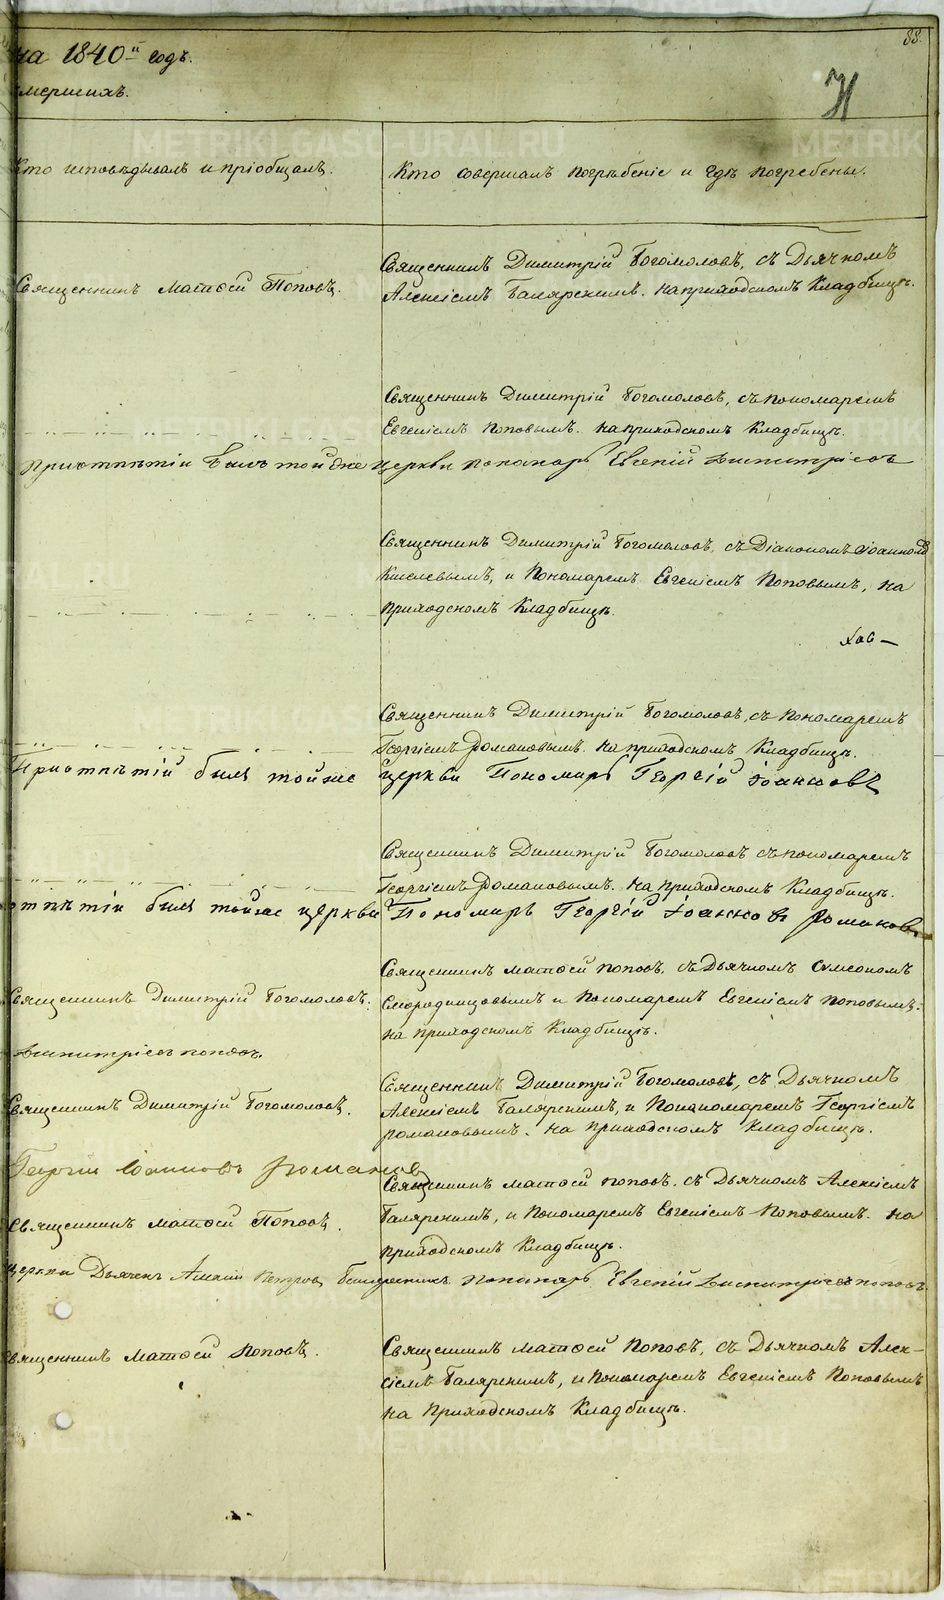 88.
на 1840й годъ.
умершихъ.
Кто исповѣдывалъ и пріобщалъ.
Кто совершалъ погребеніе и гдѣ погребены.
Священникъ Матѳей Поповъ.
Священникъ Димитрій Богомоловъ, съ Дьячкомъ
Алексіемъ Галярскимъ. на приходскомъ Кладбищѣ.
Священникъ Димитрій Богомоловъ, съ пономаремъ
Евгеніемъ Поповымъ. на приходскомъ Кладбищѣ.
При отпѣтіи былъ той же церкви пономарь Евгеній Димитріевъ
Священникъ Димитрій Богомоловъ, съ Діакономъ Іоанномъ
Киселевымъ, и Пономаремъ Евгеніемъ Поповымъ, на
приходскомъ Кладбищѣ.
Священникъ Димитрій Богомоловъ, съ Пономаремъ
Георгіемъ Романовымъ. на приходскомъ Кладбищѣ.
При отпѣтій былъ тойже церкви Пономарь Георгій Іоанновъ
Священникъ Димитрій Богомоловъ съ пономаремъ
Георгіемъ Романовымъ. на приходскомъ Кладбищѣ.
отпѣтіи былъ тойже церкви Пономарь Георгій Іоанновъ Романовъ
Священникъ Димитрій Богомоловъ.
Священникъ Матѳей Поповъ, съ Дьячкомъ Сумеономъ
Смородинцовымъ и Пономаремъ Евгеніемъ Поповымъ.
на приходскомъ Кладбищѣ.
Димитріевъ поповъ.
Священникъ Димитрій Богомоловъ.
Священникъ Димитрій Богомоловъ, съ Дьячкомъ
Алексіемъ Галярскимъ, и Пономаремъ Георгіемъ
романовымъ. на приходскомъ Кладбищѣ.
Георгій Іоанновъ Романовъ
Священникъ Матѳей Поповъ.
Священникъ Матѳей Поповъ. съ Дьячкомъ Алексіемъ
Галярскимъ, и Пономаремъ Евгеніемъ Поповымъ. на
приходскомъ Кладбищѣ.
церкви Дьячекъ Алексій Петровъ Галярскихъ пономарь Евгеній Димитріевъ поповъ
Священникъ Матѳей Поповъ.
Священникъ Матѳей Поповъ, съ Дьячкомъ Алек-
сіемъ Галярскимъ, и Пономаремъ Евгеніемъ Поповымъ
на Приходскомъ Кладбищѣ.
METRIKI.GASO-URAL.RU